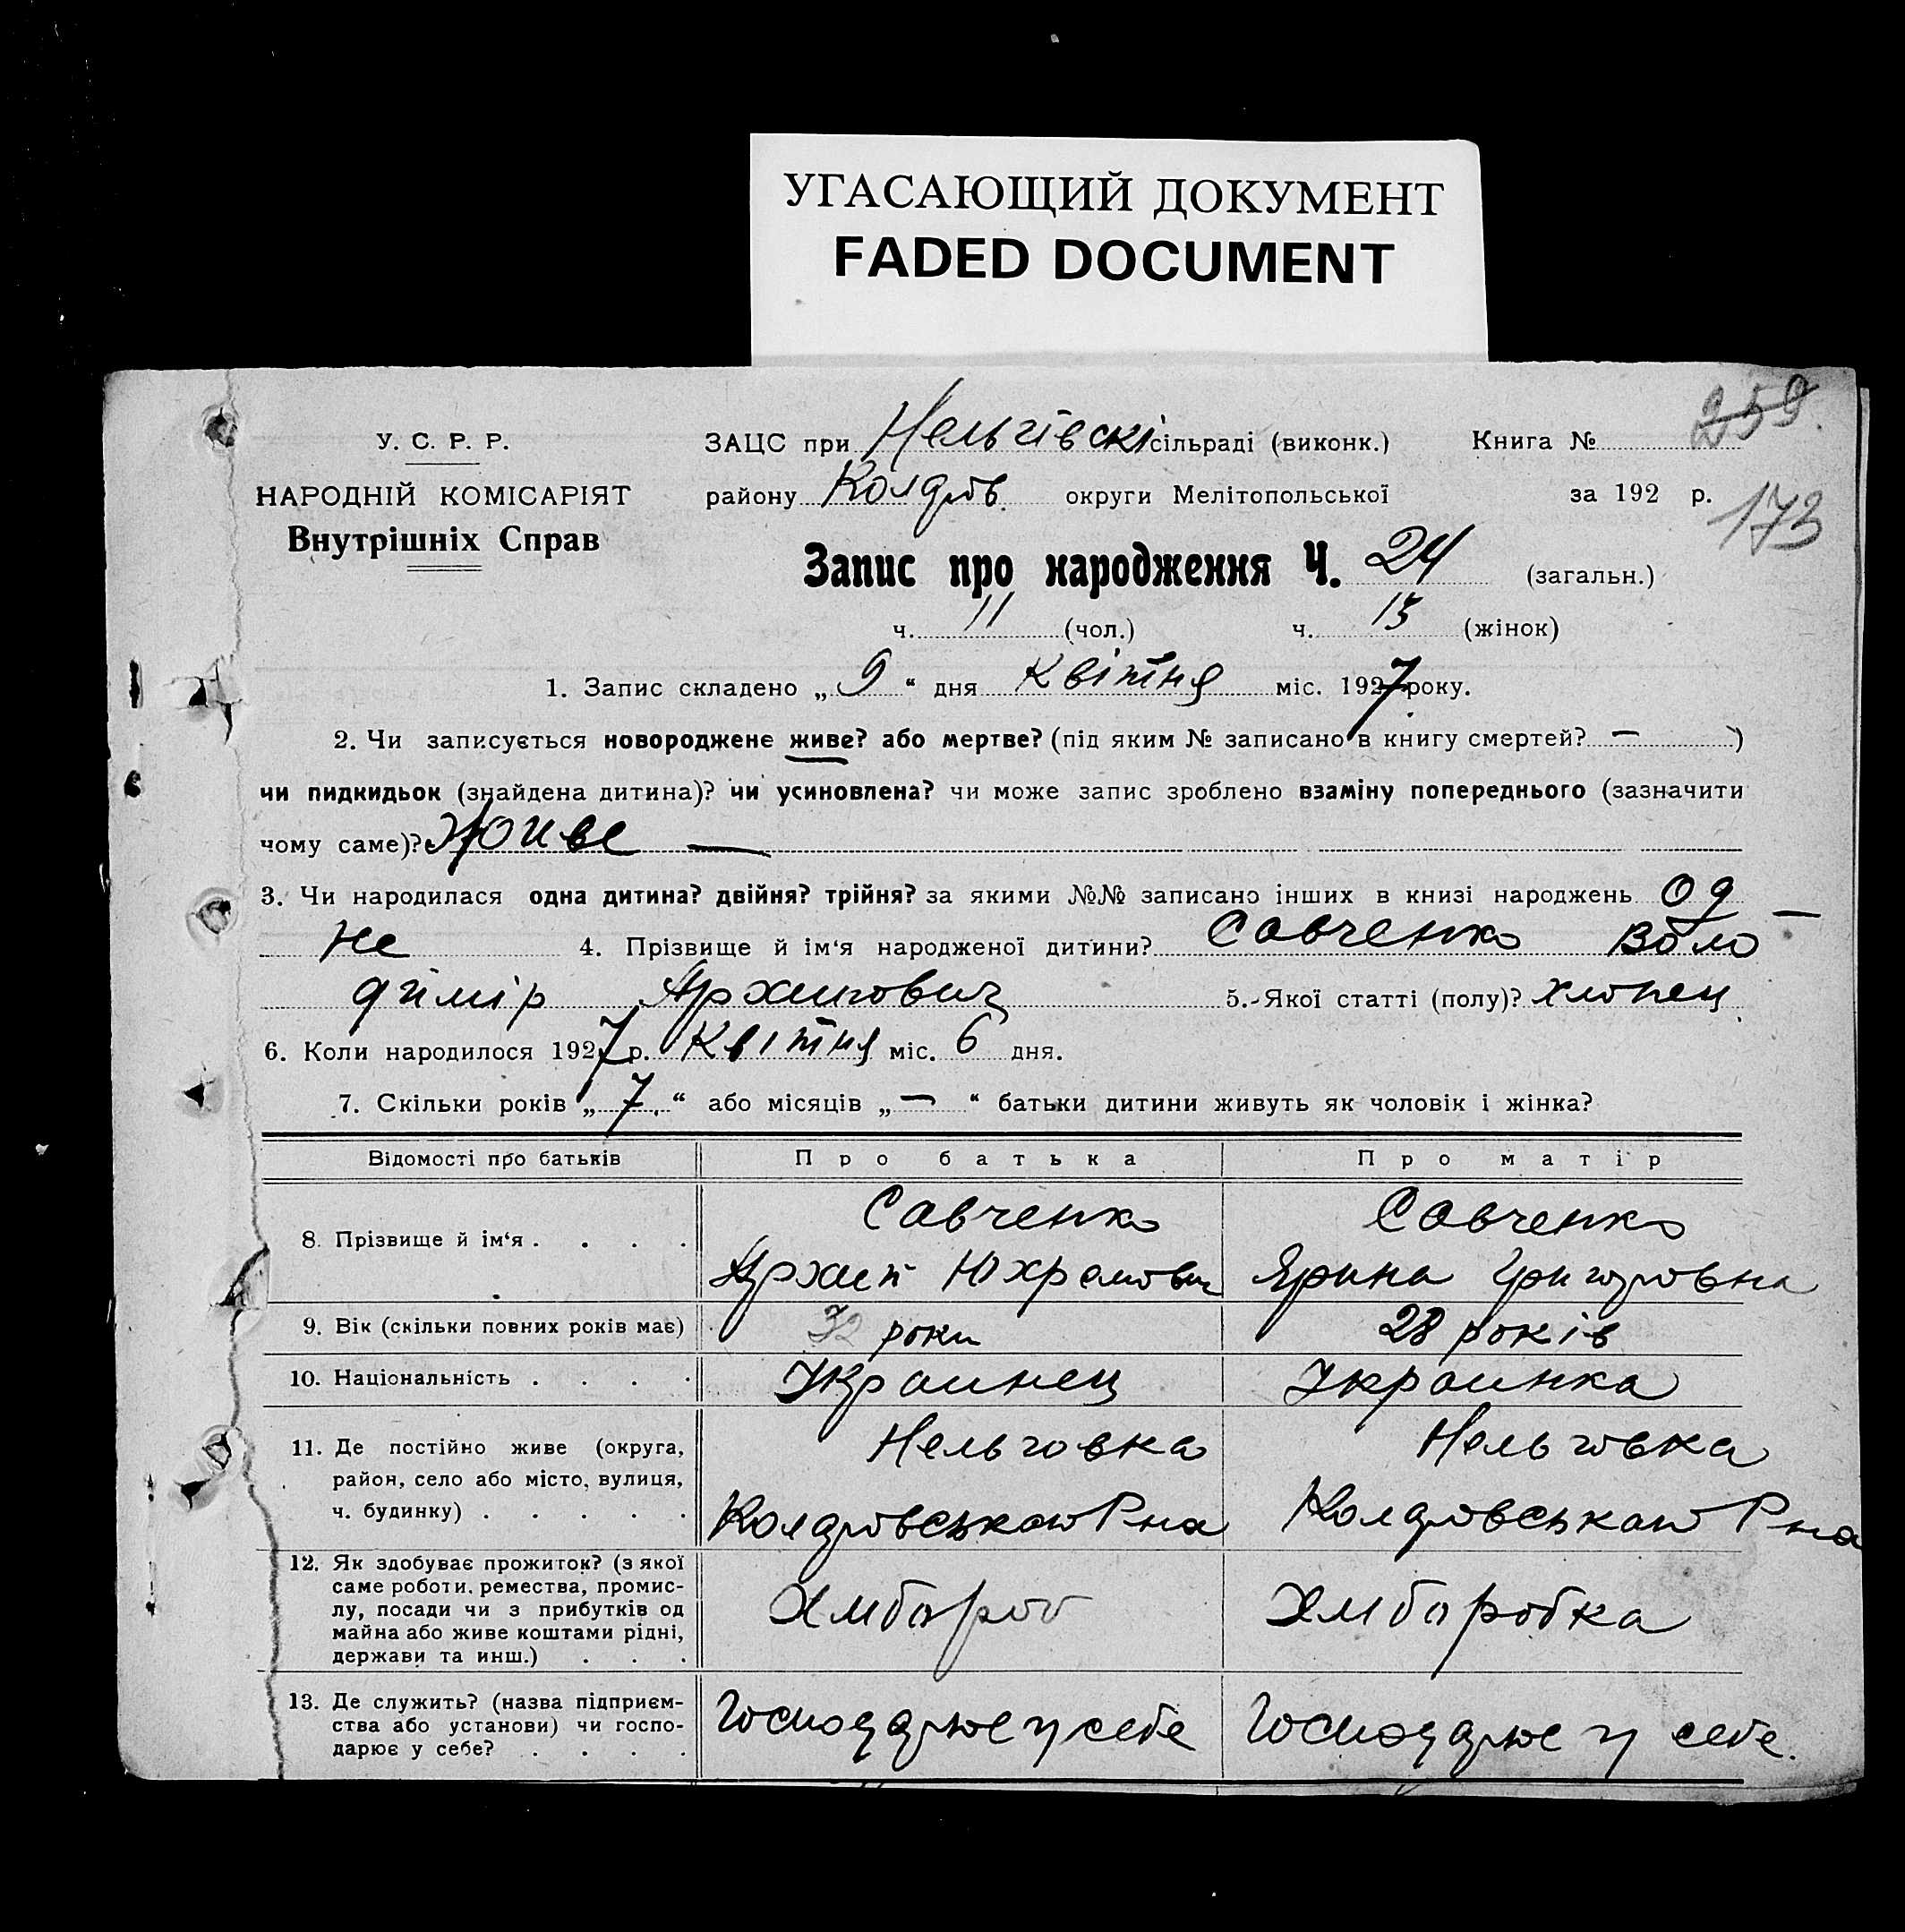 УГАСАЮЩИЙ ДОКУМЕНТ
FADED DOCUMENT
259
У. С. Р. Р.
ЗАЦС при Нельгівскі сільраді (виконк.) Книга №
НАРОДНІЙ КОМІСАРІЯТ
району округи Мелітопольської за 192 р.
173
Внутрішніх Справ
Запис про народження Ч. 24 (загальн.)
ч. 11 (чол.) ч. 13 (жінок)
1. Запис складено „ 9 “ дня Квітня міс. 1927 року.
2. Чи записується новороджене живе? або мертве? (під яким № записано в книгу смертей? — )
чи пидкидьок (знайдена дитина)? чи усиновлена? чи може запис зроблено взаміну попереднього (зазначити
чому саме)? Живе —
3. Чи народилася одна дитина? двійня? трійня? за якими №№ записано інших в книзі народжень од
не 4. Прізвище й ім‘я народженої дитини? Савченко Воло
димір Архипович 5. Якої статті (полу)? хлопец
6. Коли народилося 1927 р. Квітня міс. 6 дня.
7. Скільки років „ 7 “ або місяців „ — “ батьки дитини живуть як чоловік і жінка?
Відомості про батьків Про батька Про матір
8. Прізвище й ім‘я . . . . Савченко Савченко
Архип Юхремович Ярина Григоровна
9. Вік (скільки повних років має) 32 роки 28 років
10. Національність . . . . Украинец Украинка
11. Де постійно живе (округа, Нельговка Нельговка
район, село або місто, вулиця,
ч. будинку) . . . . . Р на Р на
12. Як здобуває прожиток? (з якої
саме роботи, ремества, промис-
лу, посади чи з прибутків од
майна або живе коштами рідні,
держави та инш.) . . .
Хлібороб Хліборобка
13. Де служить? (назва підприєм-
ства або установи) чи госпо-
дарює у себе? . . . .
Господарює у себе Господарює у себе.